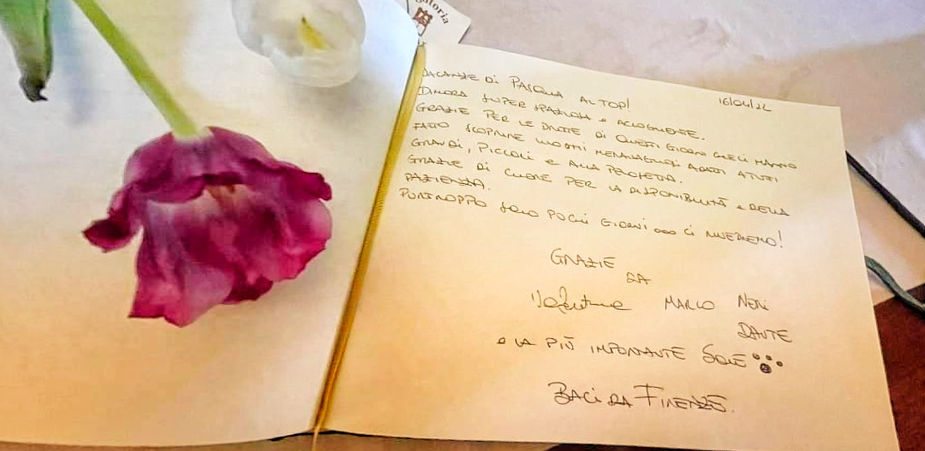 itoria
VACANZE DI PASQUA AL TOP! 16/04/22
DIMORA SUPER SPAZIOSA E ACCOGLIENTE.
GRAZIE PER LE DRITTE DI QUESTI GIORNI CHE CI HANNO
FATTO SCOPRIRE LUOGHI MERAVIGLIOSI ADATTI A TUTTI
GRANDI, PICCOLI E ALLA PELOSETTA.
GRAZIE DI CUORE PER LA DISPONIBILITÀ E DELLA
PAZIENZA.
PURTROPPO SOLO POCHI GIORNI ooo CI RIVEDREMO!
GRAZIE
DA
MARCO NERI
DANTE
E LA PIÙ IMPORTANTE SOLE
BACI DA FIRENZE.